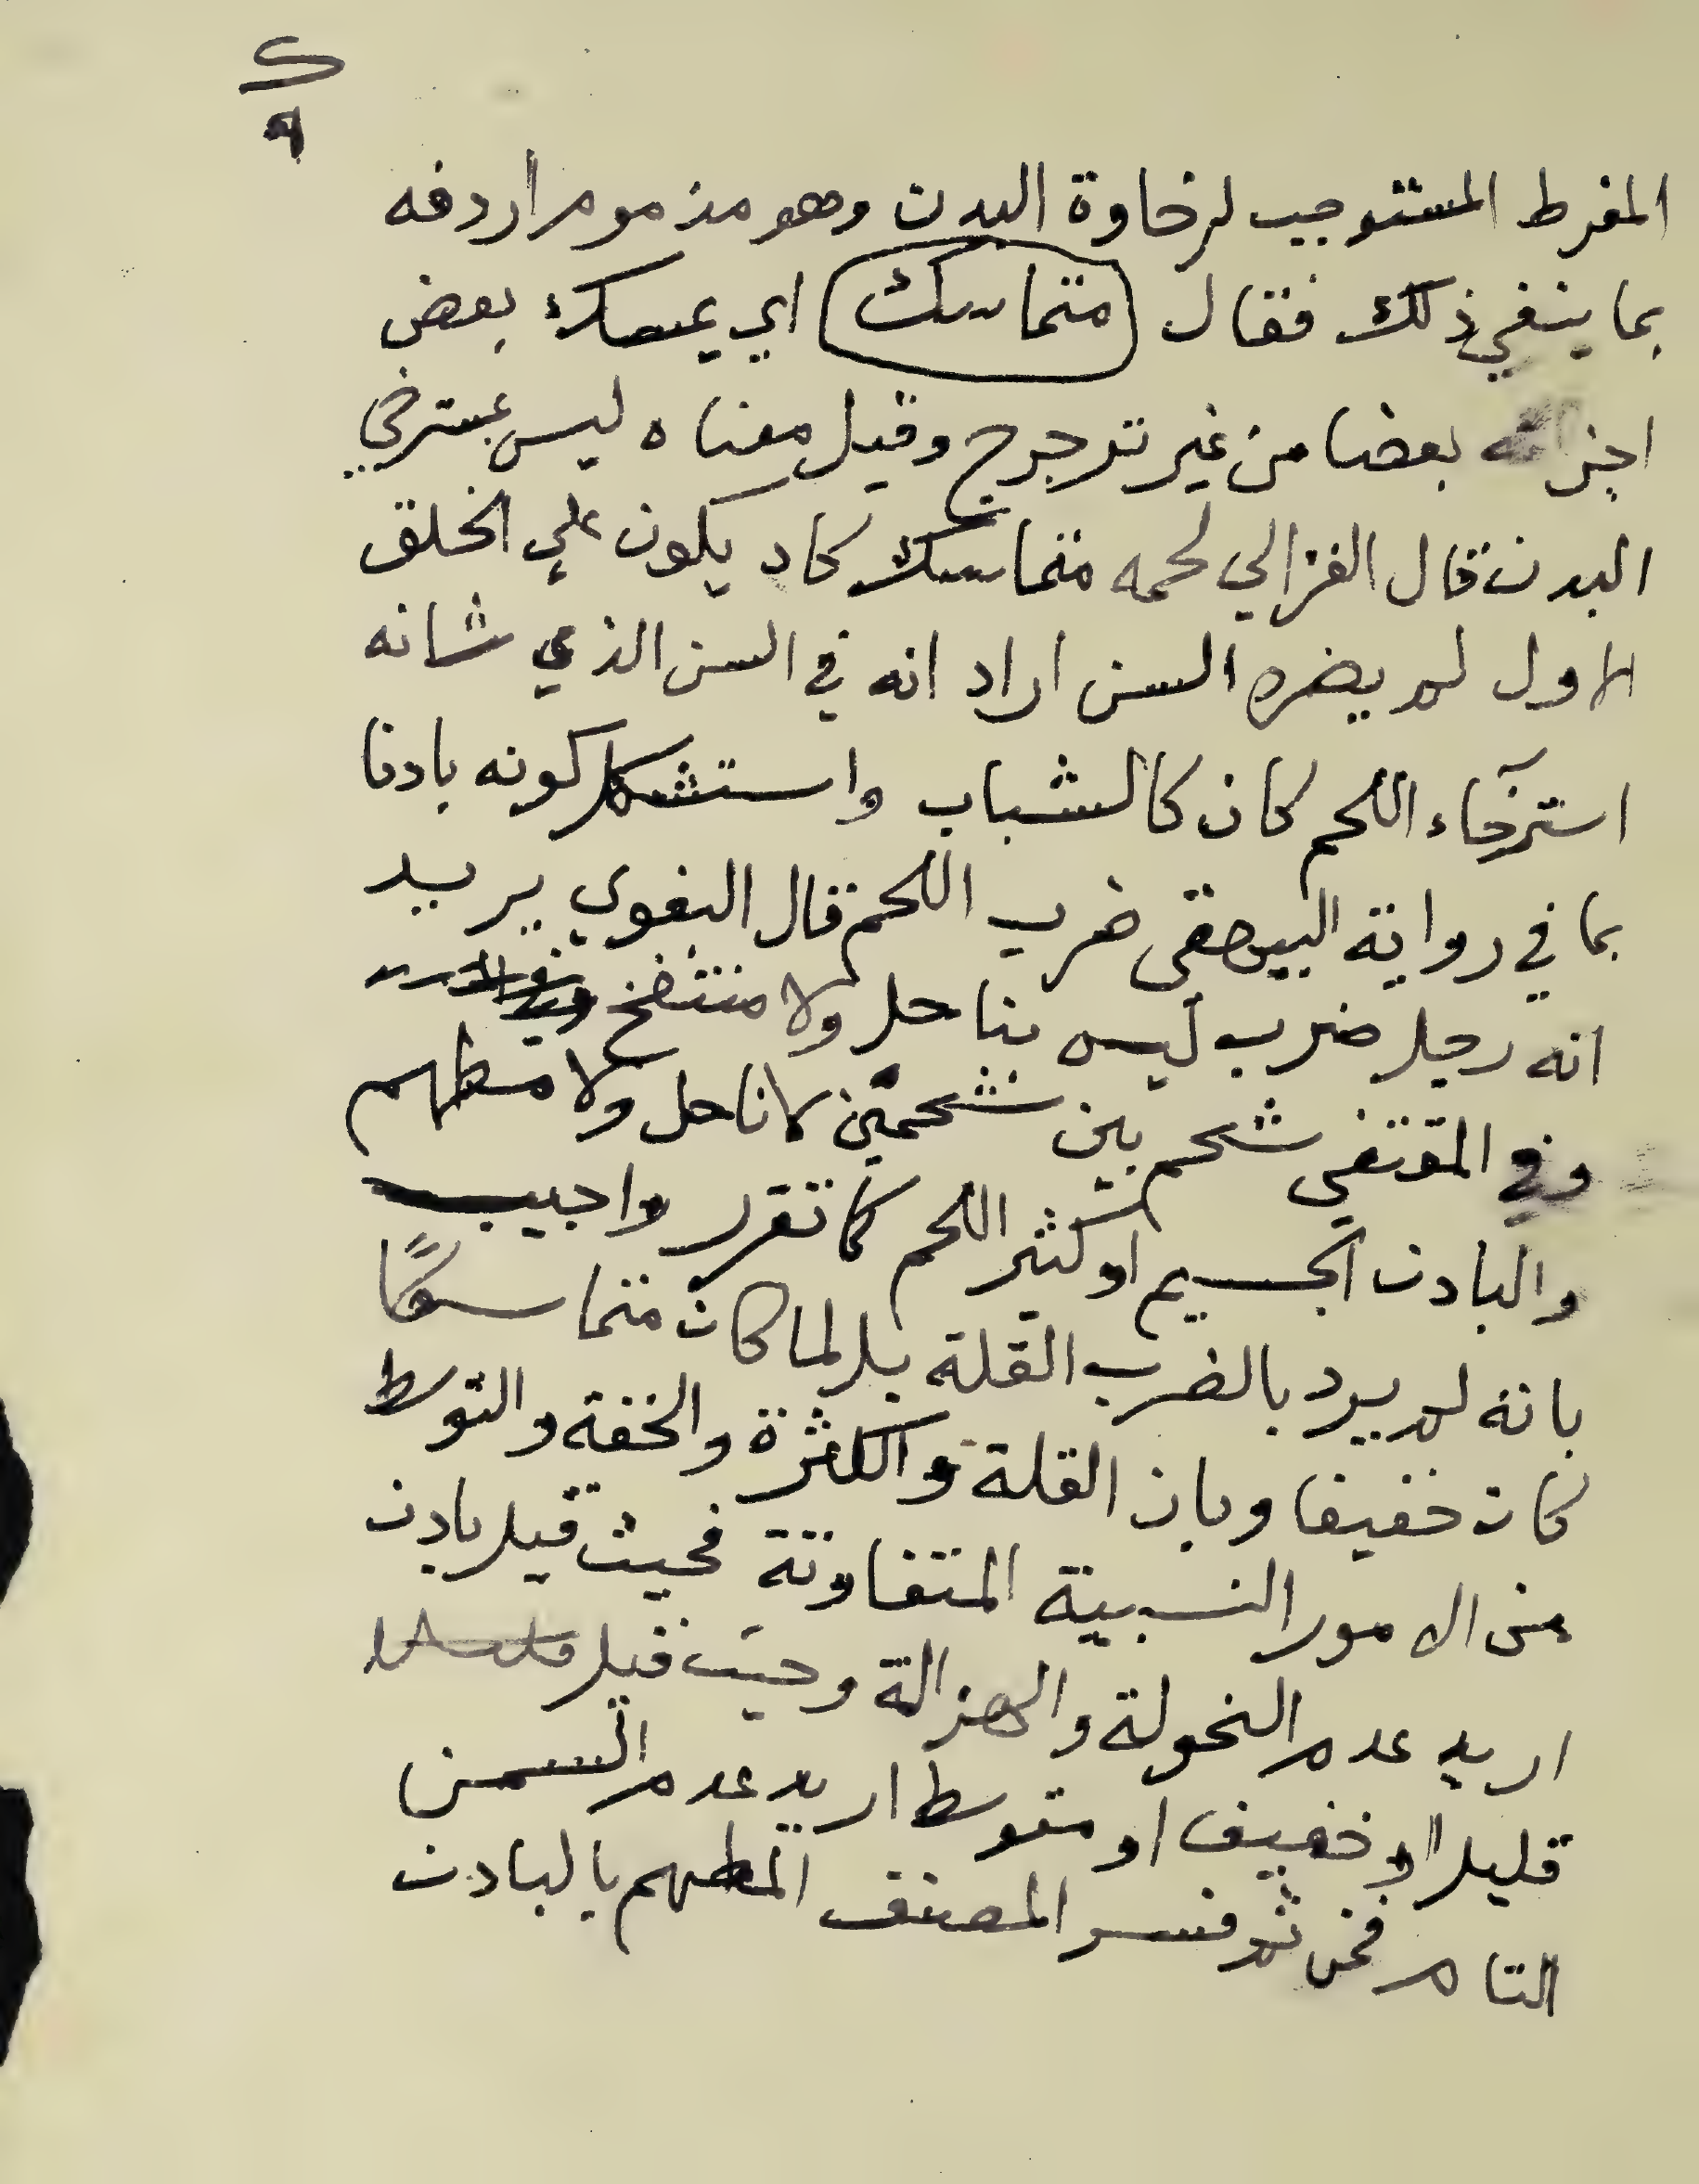 ك
٩
المفرط المستوجب لرخاوة البدن وهو مذموم اردفه
بما ينفي ذلك فقال متماسك اي يمسك بعض
اجزائه بعضا من غير ترجرج وقيل معناه ليس بمسترخي
البدن قال الغزالي لحمه متماسك كاد يكون على الخلق
الاول لم يضره السن اراد انه في السن الذي شانه
استرخآء اللحم كان كالشباب واستشكل كونه بادنا
بما في رواية البيهقي ضرب اللحم قال البغوي يريد
انه رجل ضرب ليس بناحل ولا منتفخ
وفي المقتفي شحم بين شحمين لا ناحل ولا مطهم
والبادن الجسيم او كثير اللحم كما تقرر واجيب
بانه لم يرد بالضرب القلة بل لما كان متماسكًا
كان خفيفا وبان القلة والكثرة والخفة والتوسط
من الامور النسبية المتفاوتة فحيث قيل بادن
اريد عدم النحولة والهزالة وحيث قيل
قليل او خفيف او متوسط اريد عدم السمن
التام فمن ثم فسر المصنف المطهم بالبادن